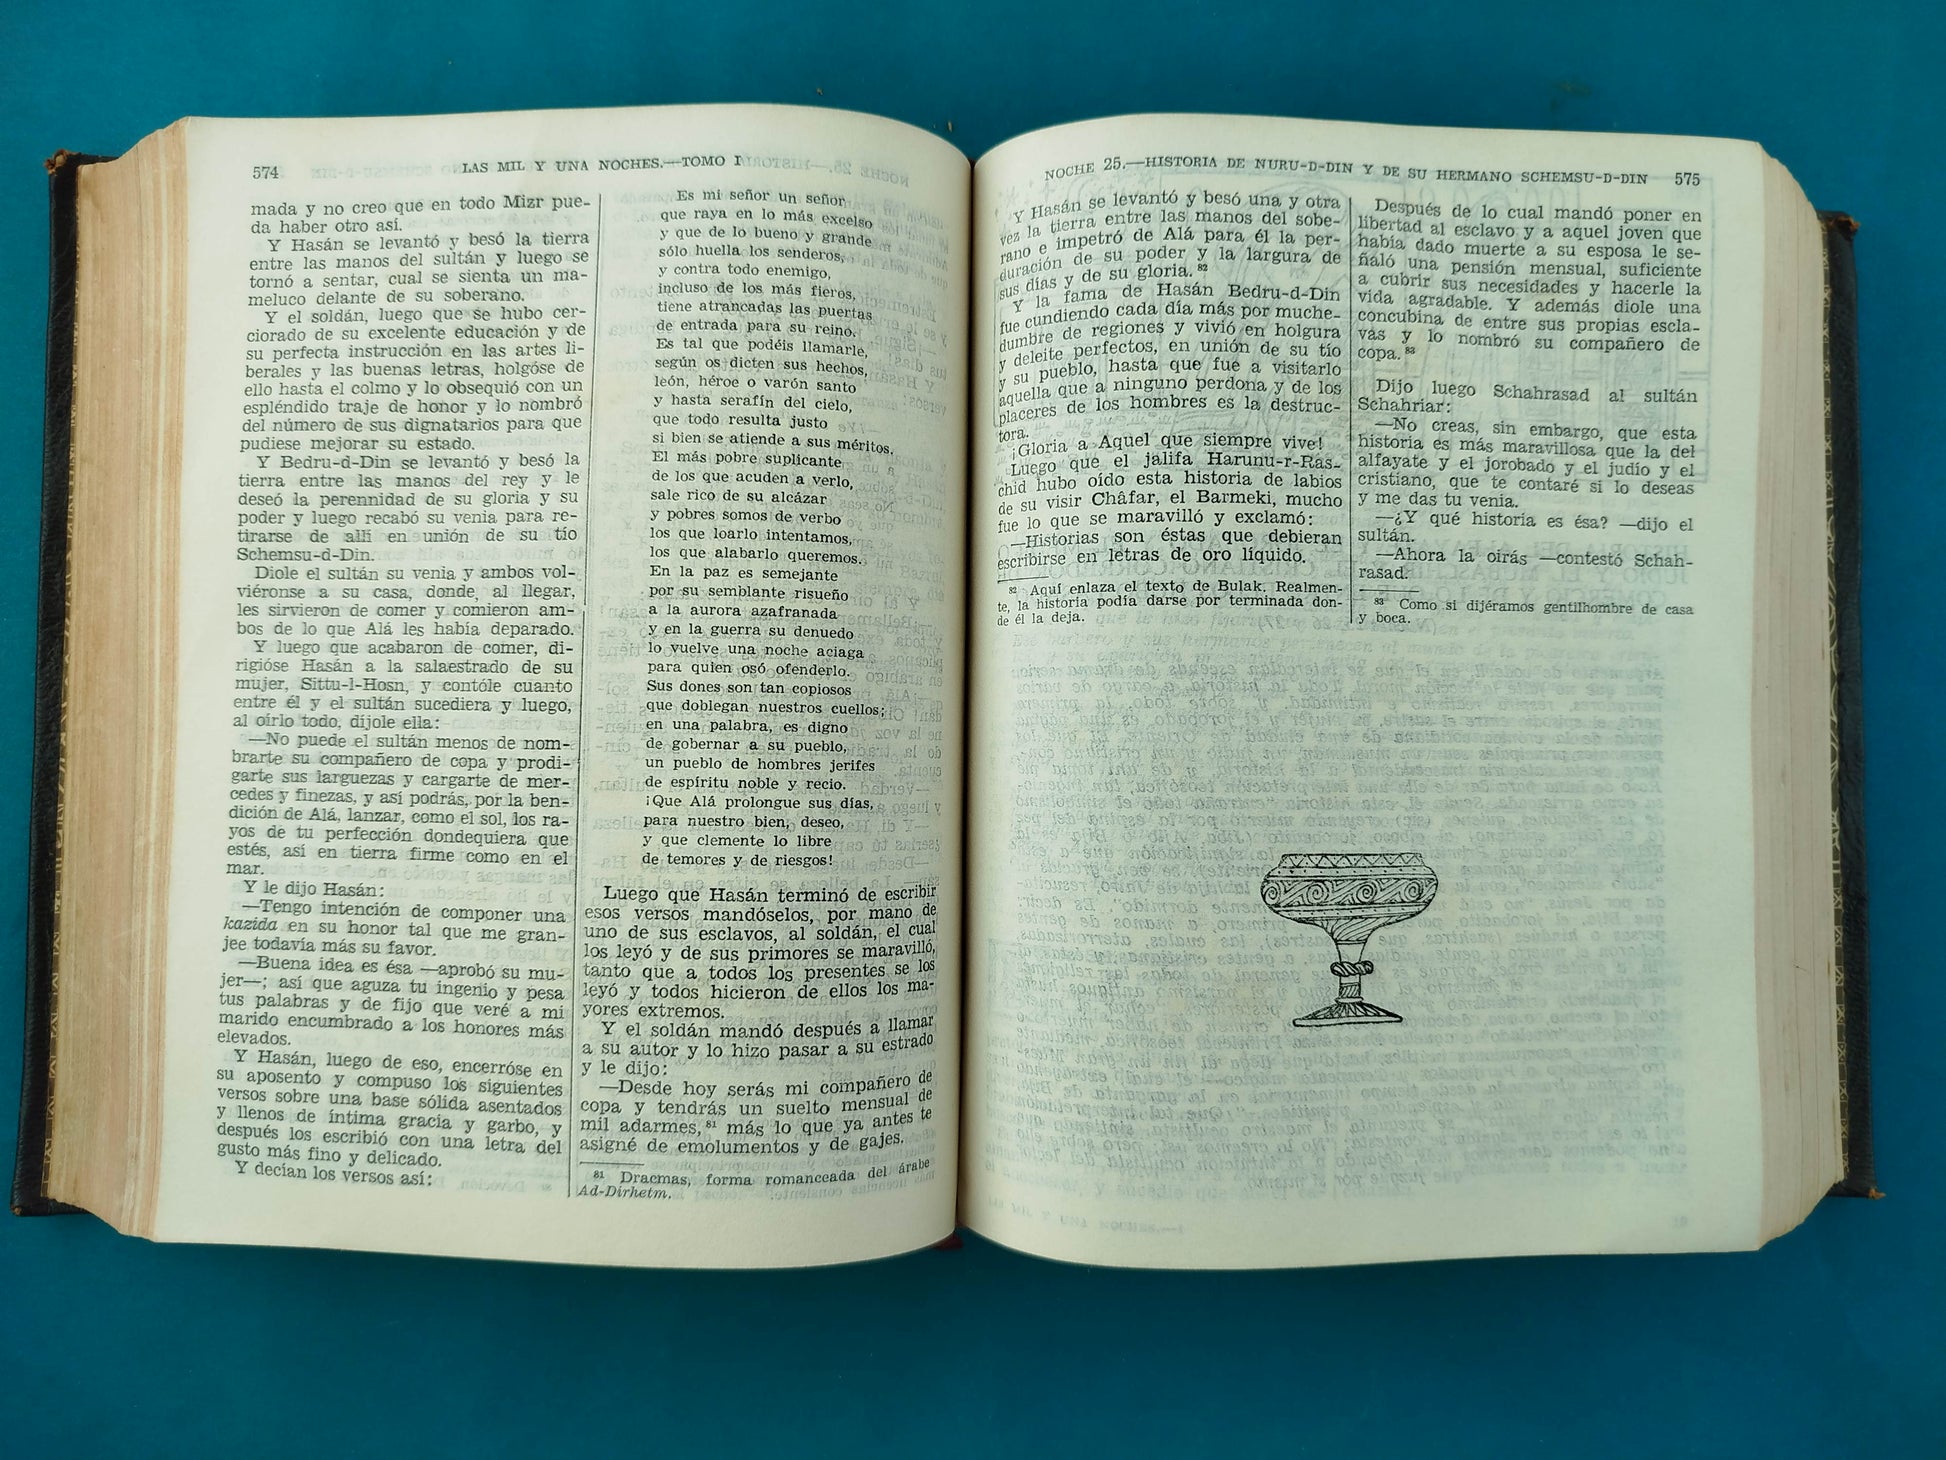 574
LAS MIL Y UNA NOCHES.—TOMO I
mada y no creo que en todo Mizr pue-
da haber otro así.
Y Hasán se levantó y besó la tierra
entre las manos del sultán y luego se
tornó a sentar, cual se sienta un ma-
meluco delante de su soberano.
Y el soldán, luego que se hubo cer-
ciorado de su excelente educación y de
su perfecta instrucción en las artes li-
berales y las buenas letras, holgóse de
ello hasta el colmo y lo obsequió con un
espléndido traje de honor y lo nombró
del número de sus dignatarios para que
pudiese mejorar su estado.
Y Bedru-d-Din se levantó y besó la
tierra entre las manos del rey y le
deseó la perennidad de su gloria y su
poder y luego recabó su venia para re-
tirarse de allí en unión de su tío
Schemsu-d-Din.
Diole el sultán su venia y ambos vol-
viéronse a su casa, donde, al llegar,
les sirvieron de comer y comieron am-
bos de lo que Alá les había deparado.
Y luego que acabaron de comer, di-
rigióse Hasán a la salaestrado de su
mujer, Sittu-l-Hosn, y contóle cuanto
entre él y el sultán sucediera y luego,
al oírlo todo, díjole ella:
—No puede el sultán menos de nom-
brarte su compañero de copa y prodi-
garte sus larguezas y cargarte de mer-
cedes y finezas, y así podrás, por la ben-
dición de Alá, lanzar, como el sol, los ra-
yos de tu perfección dondequiera que
estés, así en tierra firme como en el
mar.
Y le dijo Hasán:
—Tengo intención de componer una
kazida en su honor tal que me gran-
jee todavía más su favor.
—Buena idea es ésa —aprobó su mu-
jer—; así que aguza tu ingenio y pesa
tus palabras y de fijo que veré a mi
marido encumbrado a los honores más
elevados.
Y Hasán, luego de eso, encerróse en
su aposento y compuso los siguientes
versos sobre una base sólida asentados
y llenos de íntima gracia y garbo, y
después los escribió con una letra del
gusto más fino y delicado.
Y decían los versos así:
Es mi señor un señor
que raya en lo más excelso
y que de lo bueno y grande
sólo huella los senderos,
y contra todo enemigo,
incluso de los más fieros,
tiene atrancadas las puertas
de entrada para su reino.
Es tal que podéis llamarle,
según os dicten sus hechos,
león, héroe o varón santo
y hasta serafín del cielo,
que todo resulta justo
si bien se atiende a sus méritos.
El más pobre suplicante
de los que acuden a verlo,
sale rico de su alcázar
y pobres somos de verbo
los que loarlo intentamos,
los que alabarlo queremos.
En la paz es semejante
por su semblante risueño
a la aurora azafranada
y en la guerra su denuedo
lo vuelve una noche aciaga
para quien osó ofenderlo.
Sus dones son tan copiosos
que doblegan nuestros cuellos;
en una palabra, es digno
de gobernar a su pueblo,
un pueblo de hombres jerifes
de espíritu noble y recio.
¡Que Alá prolongue sus días,
para nuestro bien, deseo,
y que clemente lo libre
de temores y de riesgos!
Luego que Hasán terminó de escribir
esos versos mandóselos, por mano de
uno de sus esclavos, al soldán, el cual
los leyó y de sus primores se maravilló,
tanto que a todos los presentes se los
leyó y todos hicieron de ellos los ma-
yores extremos.
Y el soldán mandó después a llamar
a su autor y lo hizo pasar a su estrado
y le dijo:
—Desde hoy serás mi compañero de
copa y tendrás un suelto mensual de
mil adarmes, 81 más lo que ya antes te
asigné de emolumentos y de gajes.
81 Dracmas, forma romanceada del árabe
Ad-Dirhetm.
NOCHE 25.—HISTORIA DE NURU-D-DIN Y DE SU HERMANO SCHEMSU-D-DIN
575
Y Hasán se levantó y besó una y otra
vez la tierra entre las manos del sobe-
rano e impetró de Alá para él la per-
duración de su poder y la largura de
sus días y de su gloria. 82
Y la fama de Hasán Bedru-d-Din
fue cundiendo cada día más por muche-
dumbre de regiones y vivió en holgura
y deleite perfectos, en unión de su tío
y su pueblo, hasta que fue a visitarlo
aquella que a ninguno perdona y de los
placeres de los hombres es la destruc-
tora.
¡Gloria a Aquel que siempre vive!
Luego que el jalifa Harunu-r-Ras-
chid hubo oído esta historia de labios
de su visir Châfar, el Barmeki, mucho
fue lo que se maravilló y exclamó:
—Historias son éstas que debieran
escribirse en letras de oro líquido.
82 Aquí enlaza el texto de Bulak. Realmen-
te, la historia podía darse por terminada don-
de él la deja.
Después de lo cual mandó poner en
libertad al esclavo y a aquel joven que
había dado muerte a su esposa le se-
ñaló una pensión mensual, suficiente
a cubrir sus necesidades y hacerle la
vida agradable. Y además diole una
concubina de entre sus propias escla-
vas y lo nombró su compañero de
copa. 83
Dijo luego Schahrasad al sultán
Schahriar:
—No creas, sin embargo, que esta
historia es más maravillosa que la del
alfayate y el jorobado y el judío y el
cristiano, que te contaré si lo deseas
y me das tu venia.
—¿Y qué historia es ésa? —dijo el
sultán.
—Ahora la oirás —contestó Schah-
rasad.
83 Como si dijéramos gentilhombre de casa
y boca.